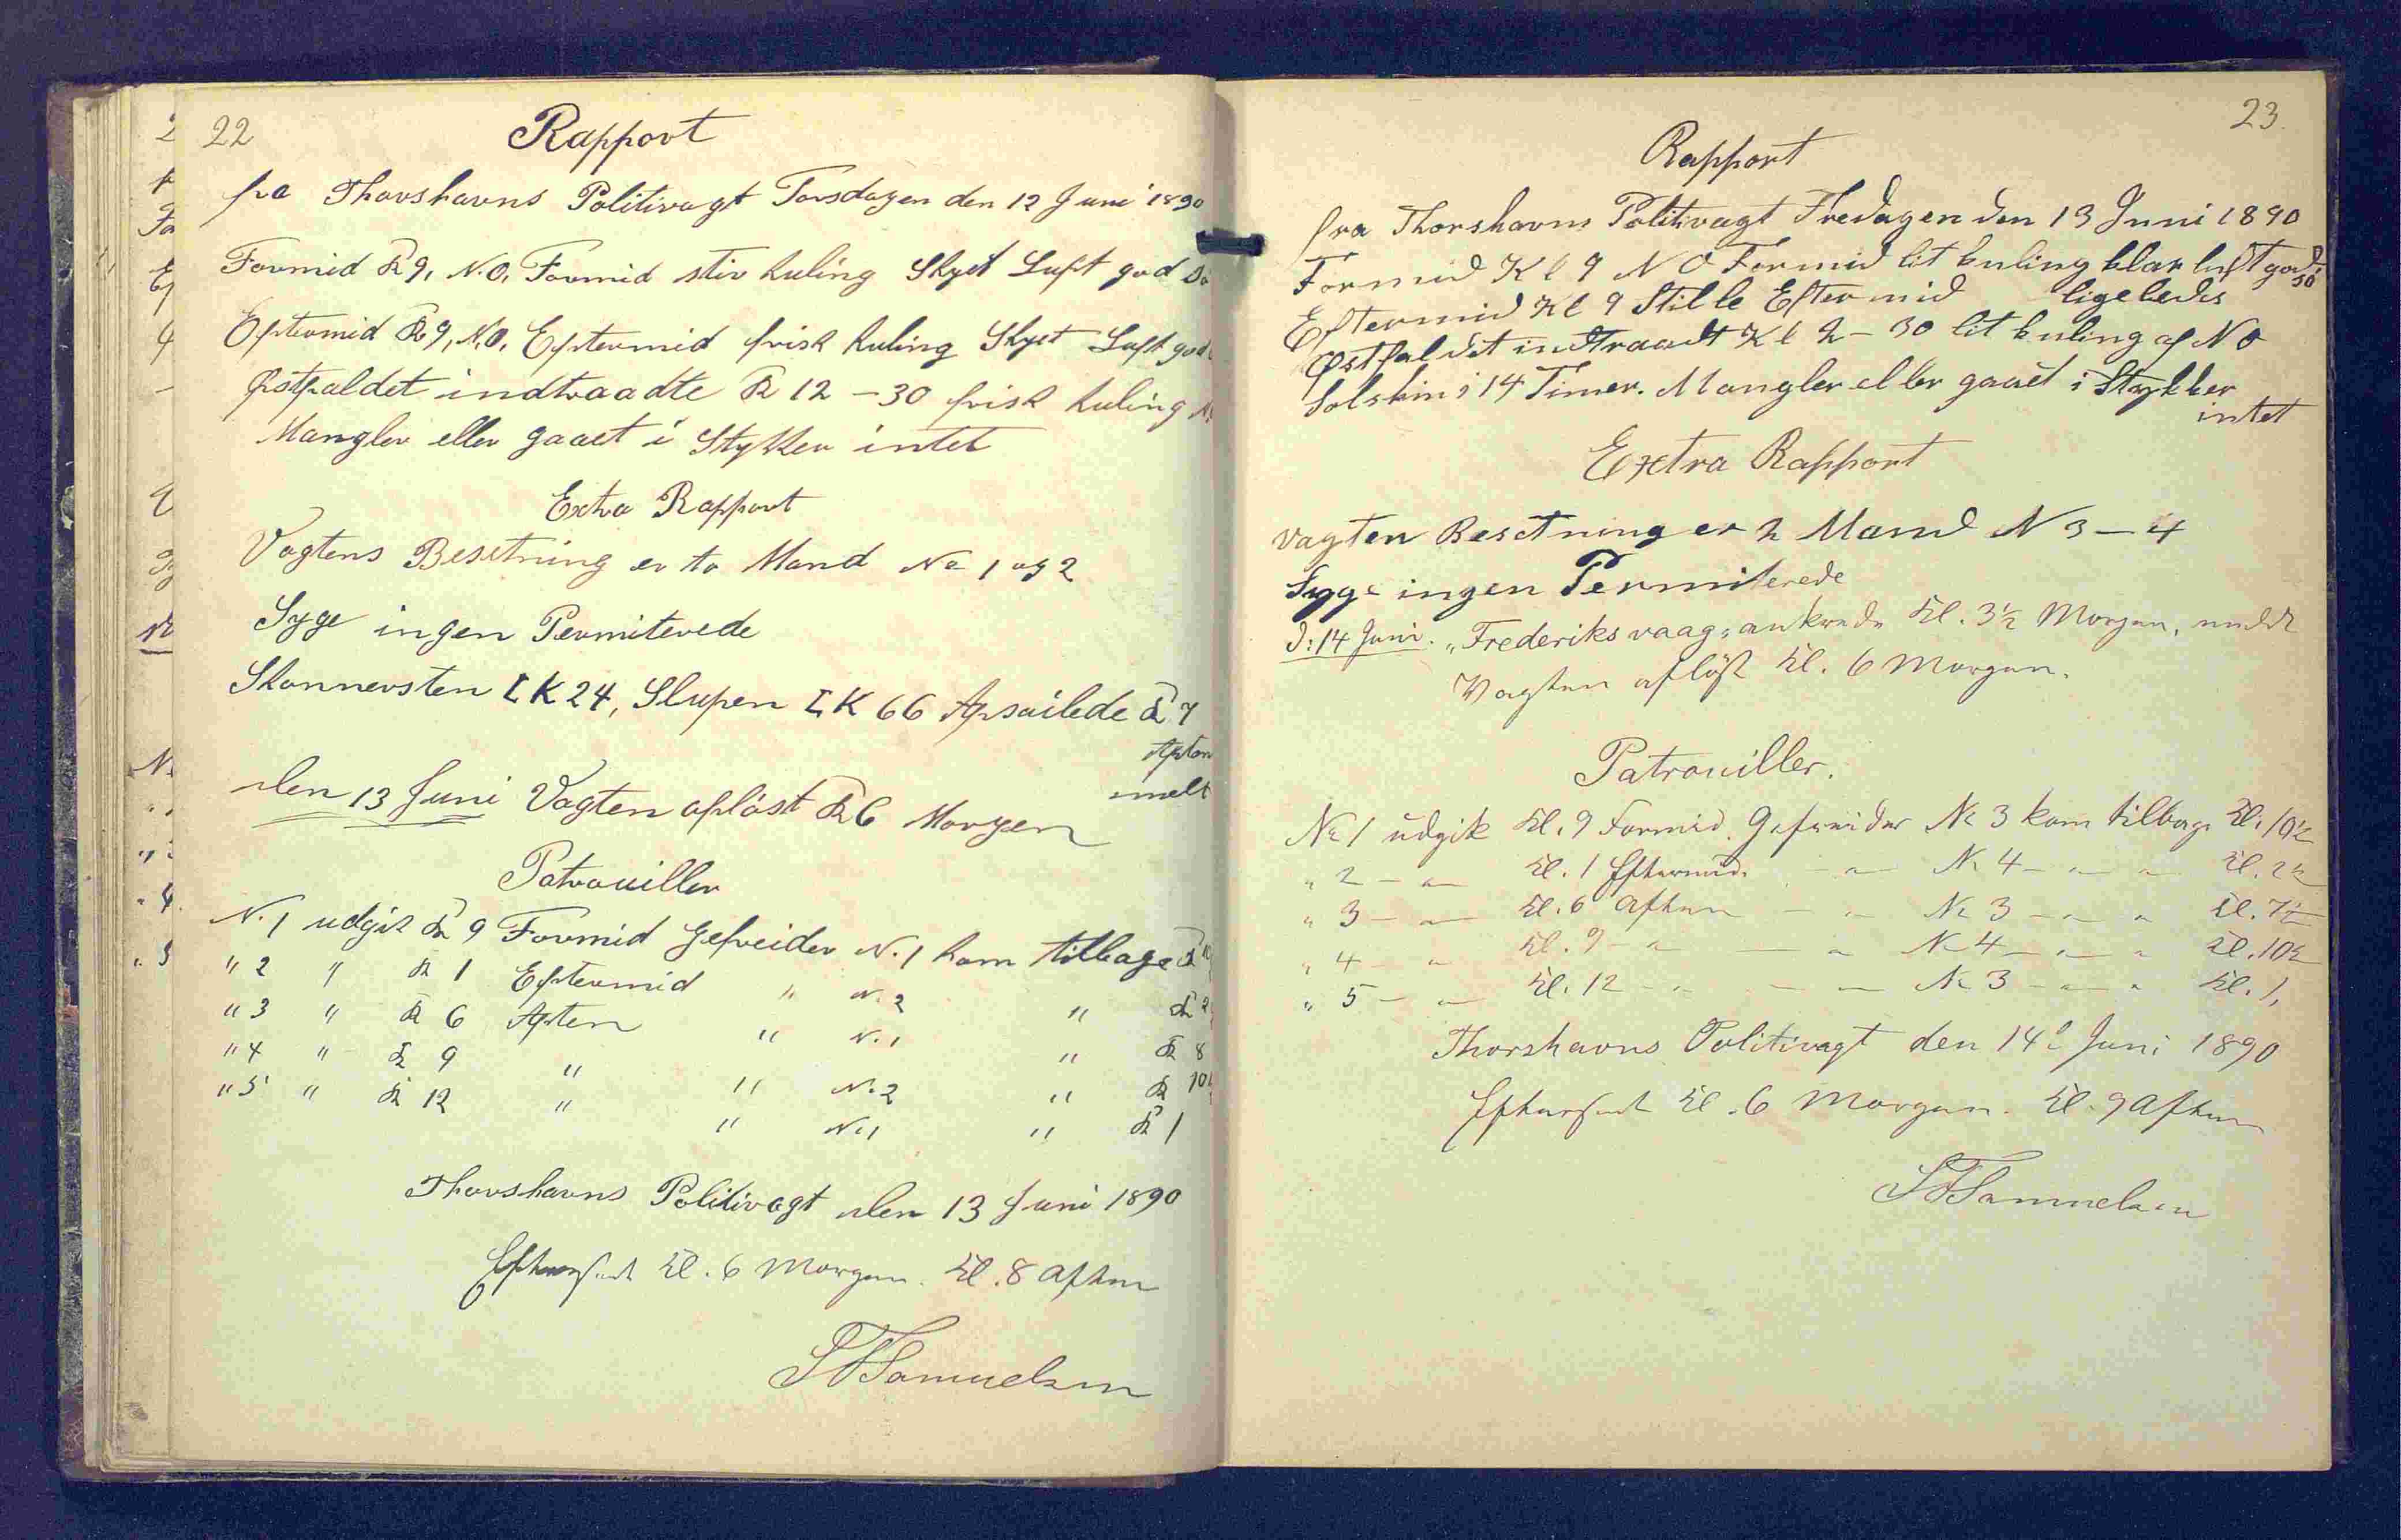 22
Rapport
fra Thorshavns Politivagt Torsdagen den 12 Juni 1890
Formid Kl 9, N.O, Formid stiv kuling Skyet Luft god
Eftermid Kl 9, N.O, Eftermid frisk kuling Skyet Luft god
Østfaldet indtraadte Kl 12 – 30 frisk kuling
Mangler eller gaaet i Stykker intet
Extra Rapport
Vagtens Besetning er to Mand No 1 og 2
Syge ingen Permiterede
Skonnersten LK 24, Slupen LK 66 Afseilede Kl 7
Aften
melt
den 13 Juni Vagten afløst Kl 6 Morgen
Patrouiller
N. 1 udgik Kl 9 Formid Gefreider N. 1 kom tilbage Kl
" 2 " Kl 1 Eftermid " N. 2 " Kl 2
" 3 " Kl 6 Aften " N. 1 " Kl 8
" 4 " Kl 9 " " N. 2 " Kl 10
" 5 " Kl 12 " " N. 1 " Kl 1
Thorshavns Politivagt den 13 Juni 1890
Efterseet Kl. 6 Morgen. Kl. 8 Aften
Samuelsen
23.
Rapport
fra Thorshavns Politivagt Fredagen den 13 Juni 1890
Formid Kl 9 N O Formid lit kuling klar luft god
sö
Eftermid Kl 9 Stille Eftermid ligeledes
Østfaldet indtraadt Kl 2 – 30 lit kuling af N O
Solskin i 14 Timer. Mangler eller gaaet i Stykker
intet
Extra Rapport
vagten Besetning er 2 Mand N 3 – 4
Syge ingen Permiterede
d: 14 Juni. "Frederiksvaag" ankrede Kl. 3½ Morgen, meldt
Vagten afløst Kl. 6 Morgen.
Patrouiller.
No 1 udgik Kl. 9 Formid. Gefreider No 3 kom tilbage Kl. 10½
" 2 – " – Kl. 1 Eftermid. – " – No 4 – " – " – Kl. 2½
" 3 – " – Kl. 6 Aften – " – No 3 – " – " Kl. 7½
" 4 – " Kl. 9 – " – " No 4 – " – " Kl. 10½
" 5 – " – Kl. 12 – " – " – No 3 – " – " Kl. 1.
Thorshavns Politivagt den 14d Juni 1890
Efterseet Kl. 6 Morgen. Kl. 9 Aften
Samuelsen